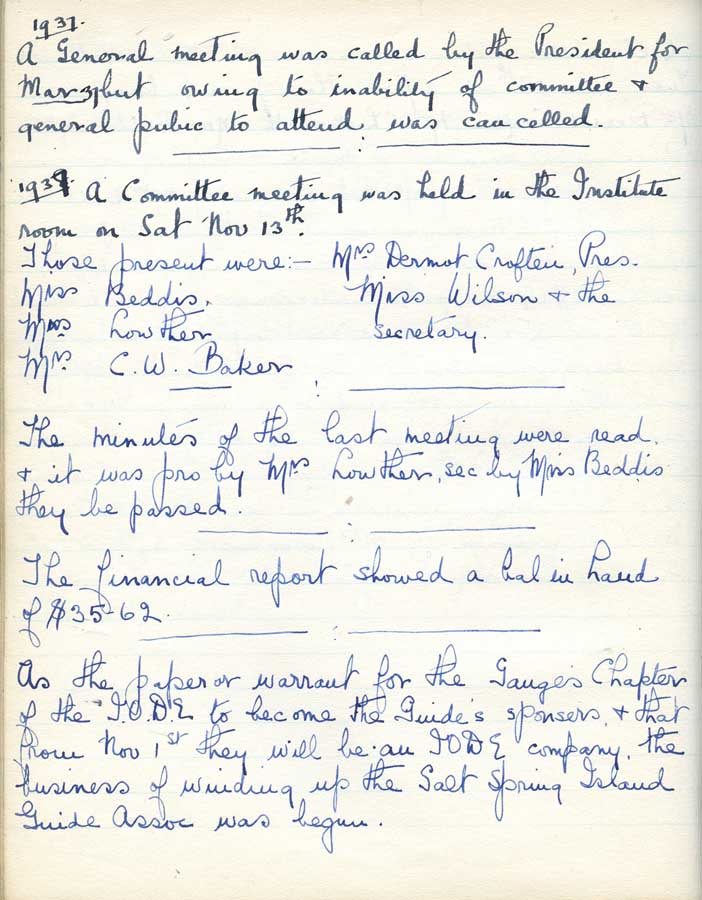 1937.
A General meeting was called by the President for
Mar 31 but owing to inability of committee +
general pubic to attend was cancelled.
A Committee meeting was held in the Institute
room on Sat Nov 13th.
Those present were:- Mrs Dermot Croften, Pres.
Miss Beddis. Miss Wilson + the
Mrs Lowther secretary.
Mrs C.W. Baker
The minutes of the last meeting were read.
+ it was pro by Mrs Lowther, sec by Miss Beddis
they be passed.
The financial report showed a bal in hand
of $35-62.
As the paper or warrant for the Ganges Chapter
of the I.O.D.E to become the Guide's sponsers, + that
from Nov 1st they will be an IODE company, the
business of winding up the Salt Spring Island
Guide Assoc was begun.